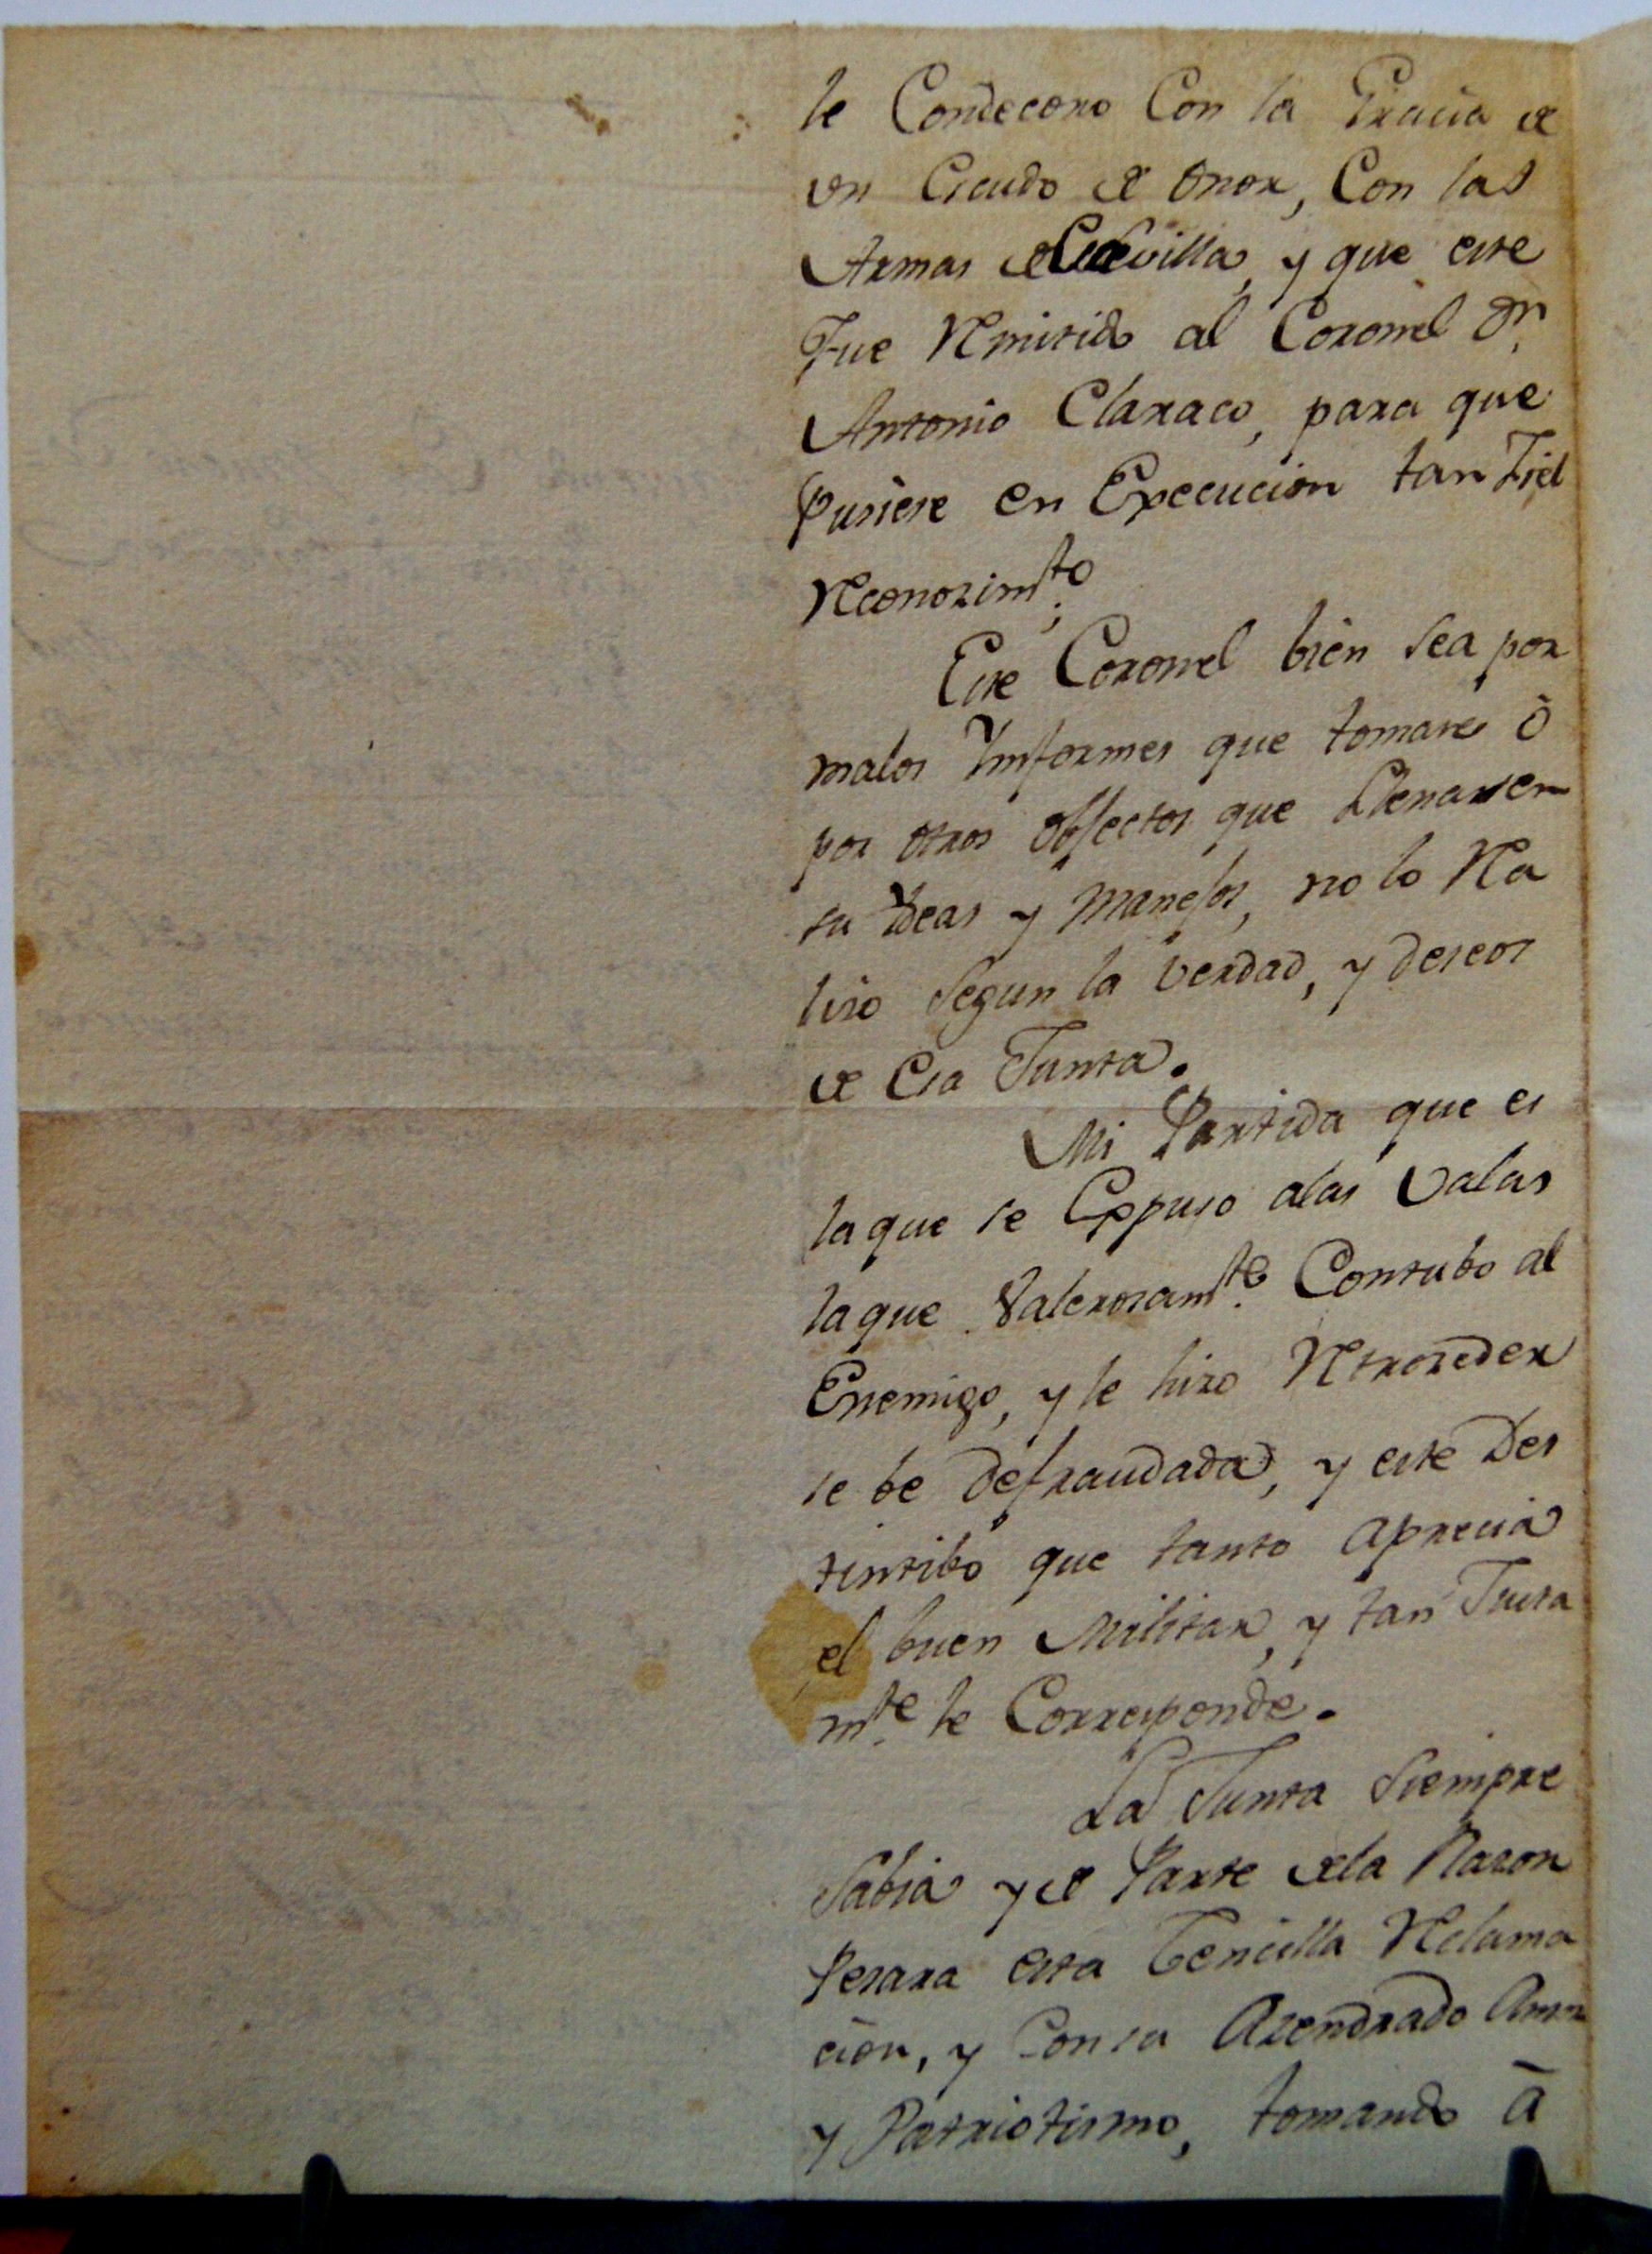 le Condecoro Con la Gracia de
un Escudo de Onor, Con las
Armas de esa villa, y que este
Fue Remitido al Coronel Dn.
Antonio Claraco, para que
Pusiese en Execucion tan Fiel
Reconozimto.
Este Coronel bien sea por
malos Ynformes que tomare ò
por otros obJectos que Llenasen
su Ydeas y Manejos, no lo Rea
liso Segun la verdad, y deseos
de Esa Junta.
Mi Partida que es
la que se Expuso alas Valas
la que Valerosamte. Contubo al
Enemigo, y le hizo Retrozeder
se be Defraudada, y este Des
tintibo que tanto Aprecia
el buen Militar, y tan Justa
mte. le Corresponde.
La Junta Siempre
Sabia y de Parte dela Razon
Pesara esta Cencilla Reclama
cion, y Con su Acendrado Amor
y Patriotismo, tomando à